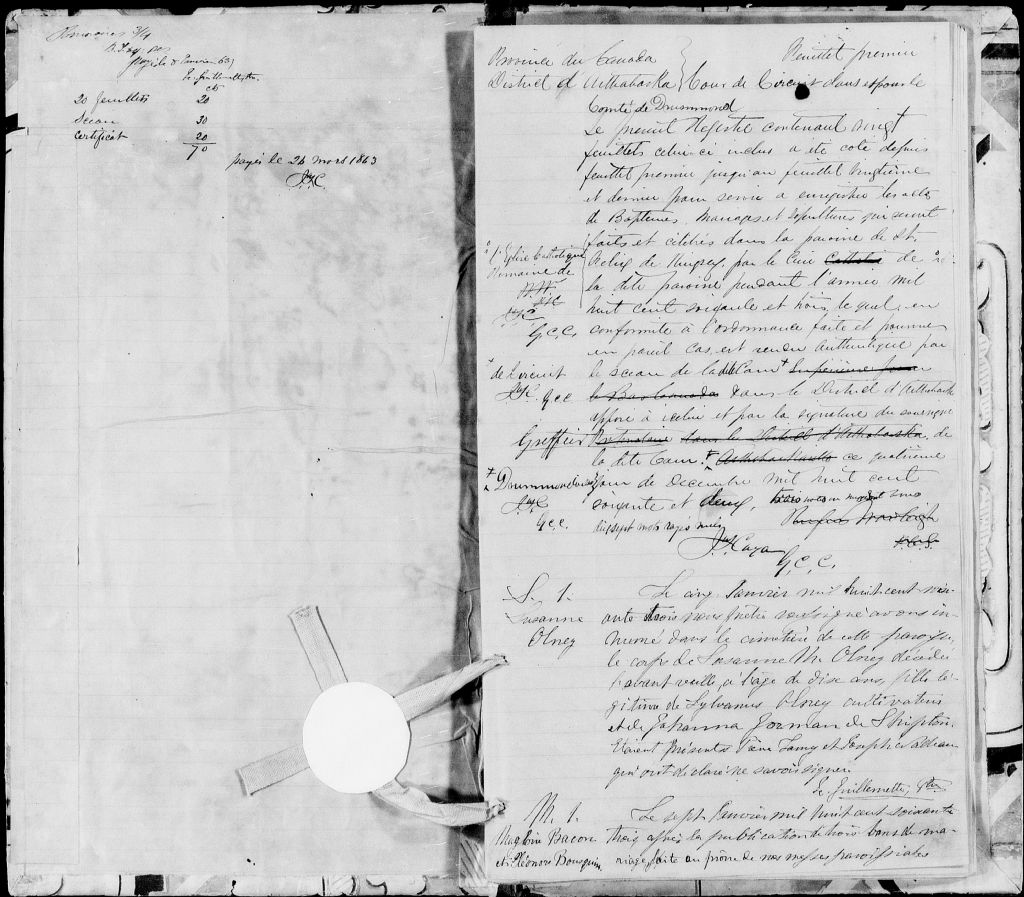 Honoraires
payé le 8 Janvier 63
cts
20 feuillets 20
Sceau 30
Certificat 20
70
payés le 26 mars 1863
Province du Canada
District d'Arthabaska
Feuillet premier
Cour de Circuit dans et pour le
Comté de Drummond
Le présent Registre contenant vingt
feuillets celui-ci inclus a été coté depuis
feuillet premier jusqu'au feuillet vingtième
et dernier pour servir a enregistrer les actes
de Baptêmes, Mariages et Sépultures qui seront
faits et célébrés dans la paroisse de St.
Félix de Kingsey, par le Curé de
la dite paroisse pendant l'année mil
huit cent soixante et trois lequel, en
conformité à l'ordonnance faite et pourvue
en pareil cas, est rendu authentique par
le sceau de la dite Cour Supérieure pour
le Bas Canada dans le District d'Arthabaska
apposé à icelui et par la signature du soussigné
Greffier Protonotaire dans le District d'Arthabaska, de
la dite Cour. ce quatrième
jour de Decembre mil huit cent
soixante et deux,
dix sept mots rayés nuls
G. C. C.
l'Eglise Catholique
Romaine de
G. C. C.
de Circuit
G C C
Drummondville
G. C. C.
S. 1.
Susanne
Olney
Le cinq Janvier mil huit cent soix-
ante trois nous prêtre soussigné avons in-
humé dans le cimetière de cette paroisse,
le corps de Susanne M. Olney décédée
l'avant veille, à l'age de dix ans, fille lé-
gitime de Sylvanus Olney cultivateur
et de Johanna Gorman de Shipton.
Etaient présents
qui ont déclaré ne savoir signer.
Guillemette, Ptre
M. 1.
Magloire Bacon
et Eléonore Bourguin
Le sept Janvier mil huit cent soixante
trois après la publication de trois bans de ma-
riage, faite au prône de nos messes paroissiales